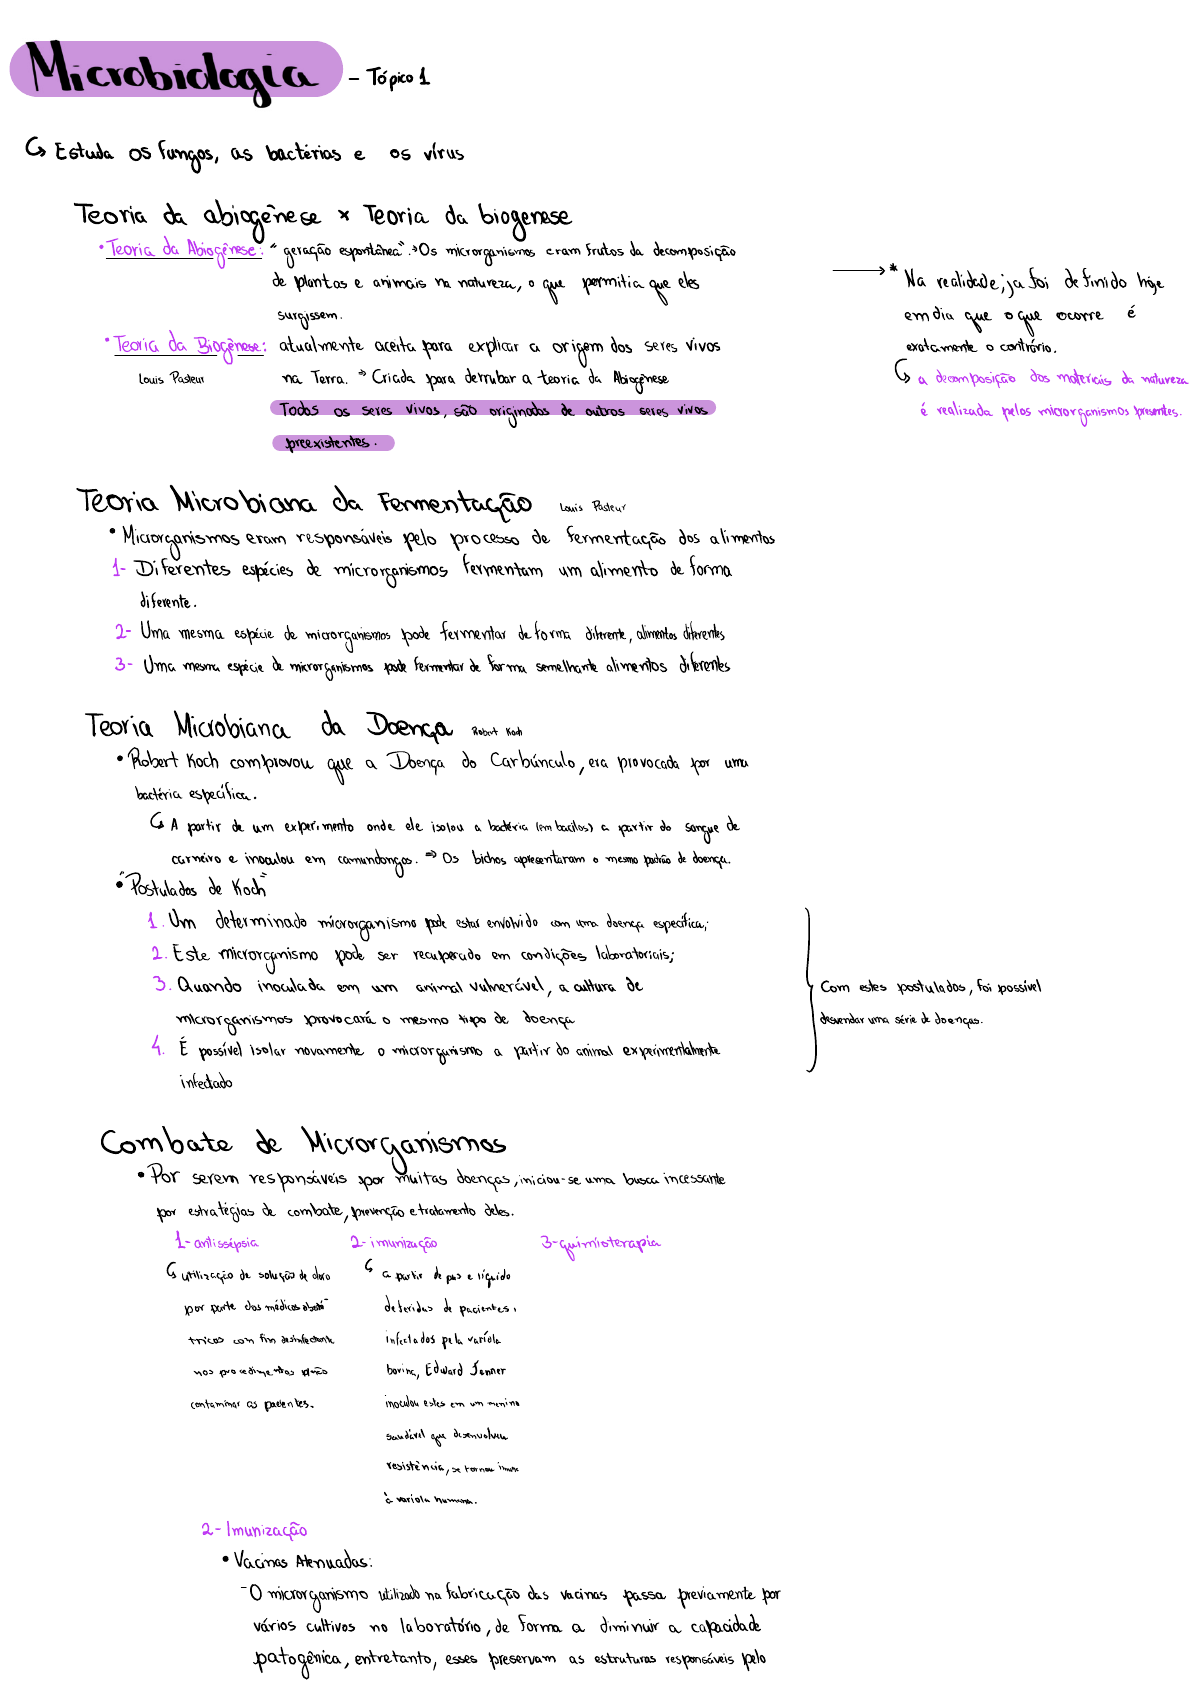 Microbiologia - Tópico 1
↳ Estuda os fungos, as bactérias e os vírus
Teoria da abiogênese x Teoria da biogenese
• Teoria da Abiogênese: "geração espontânea". → Os microrganismos eram frutos da decomposição
de plantas e animais na natureza, o que permitia que eles
surgissem.
→ * Na realidade, ja foi definido hoje
em dia que o que ocorre é
exatamente o contrário.
↳ a decomposição dos materiais da natureza
é realizada pelos microrganismos presentes.
• Teoria da Biogênese: atualmente aceita para explicar a origem dos seres vivos
Louis Pasteur
na Terra. ⇒ Criada para derrubar a teoria da Abiogênese
Todos os seres vivos, são originados de outros seres vivos
preexistentes.
Teoria Microbiana da Fermentação Louis Pasteur
• Microrganismos eram responsáveis pelo processo de fermentação dos alimentos
1- Diferentes espécies de microrganismos fermentam um alimento de forma
diferente.
2- Uma mesma espécie de microrganismos pode fermentar de forma diferente, alimentos diferentes
3- Uma mesma espécie de microrganismos pode fermentar de forma semelhante alimentos diferentes
Teoria Microbiana da Doença Robert Koch
• Robert Koch comprovou que a Doença do Carbúnculo, era provocada por uma
bactéria específica.
↳ A partir de um experimento onde ele isolou a bactéria (em bacilos) a partir do sangue de
carneiro e inoculou em camundongos. ⇒ Os bichos apresentaram o mesmo padrão de doença.
• "Postulados de Koch"
1. Um determinado microrganismo pode estar envolvido com uma doença específica;
2. Este microrganismo pode ser recuperado em condições laboratoriais;
3. Quando inoculada em um animal vulnerável, a cultura de
microrganismos provocará o mesmo tipo de doença
4. É possível isolar novamente o microrganismo a partir do animal experimentalmente
infectado
Com estes postulados, foi possível
desvendar uma série de doenças.
Combate de Microrganismos
• Por serem responsáveis por muitas doenças, iniciou-se uma busca incessante
por estratégias de combate, prevenção e tratamento deles.
1- antissépsia
↳ utilização de solução de cloro
por parte dos médicos obsté-
tricos com fim desinfectante
nos procedimentos p/ não
contaminar as pacientes.
2- imunização
↳ a partir de pus e líquido
de feridas de pacientes,
infectados pela varíola
bovina, Edward Jenner
inoculou estes em um menino
saudável que desenvolveu
resistência, se tornou imune
à varíola humana.
3- quimioterapia
2- Imunização
• Vacinas Atenuadas:
- O microrganismo utilizado na fabricação das vacinas passa previamente por
vários cultivos no laboratório, de forma a diminuir a capacidade
patogênica, entretanto, esses preservam as estruturas responsáveis pelo